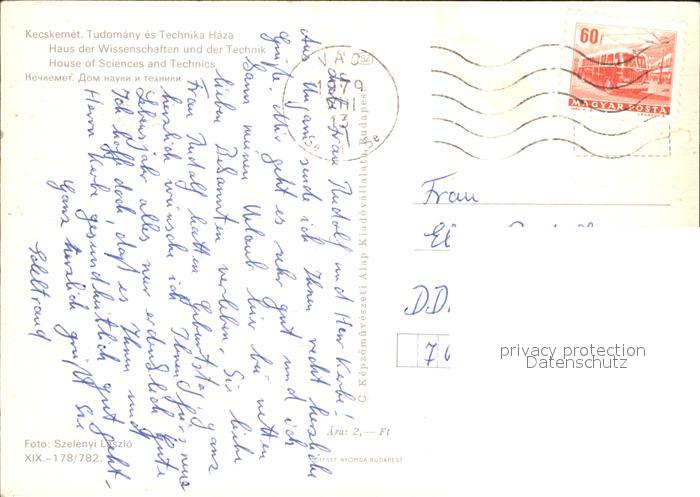 Kecskemét. Tudomány és Technika Háza
Haus der Wissenschaften und der Technik
House of Sciences and Technics
Нечкемет. Дом науки и техники
Frau Rudolf und Herr Kerbe!
Aus Ungarn sende ich Ihnen recht herzliche
Grüße. Mir geht es sehr gut und ich
kann meinen Urlaub hier bei netten
lieben Bekannten verleben. Sie liebe
Frau Rudolf hatten Geburtstag, ganz
herzlich wünsche ich Ihnen fürs neue
Lebensjahr alles nur erdenklich Gute
Ich hoffe doch, daß es Ihnen und
Herrn Kerbe gesundheitlich gut geht.
Ganz herzlich grüßt Sie
VÁC
1979
60f
MAGYAR POSTA
© Képzőművészeti Alap Kiadóvállalata, Budapest
Frau
DD
70
privacy protection
Datenschutz
Ára: 2,— Ft
Foto: Szelényi László
XIX.–178/782.
OFFSET NYOMDA BUDAPEST